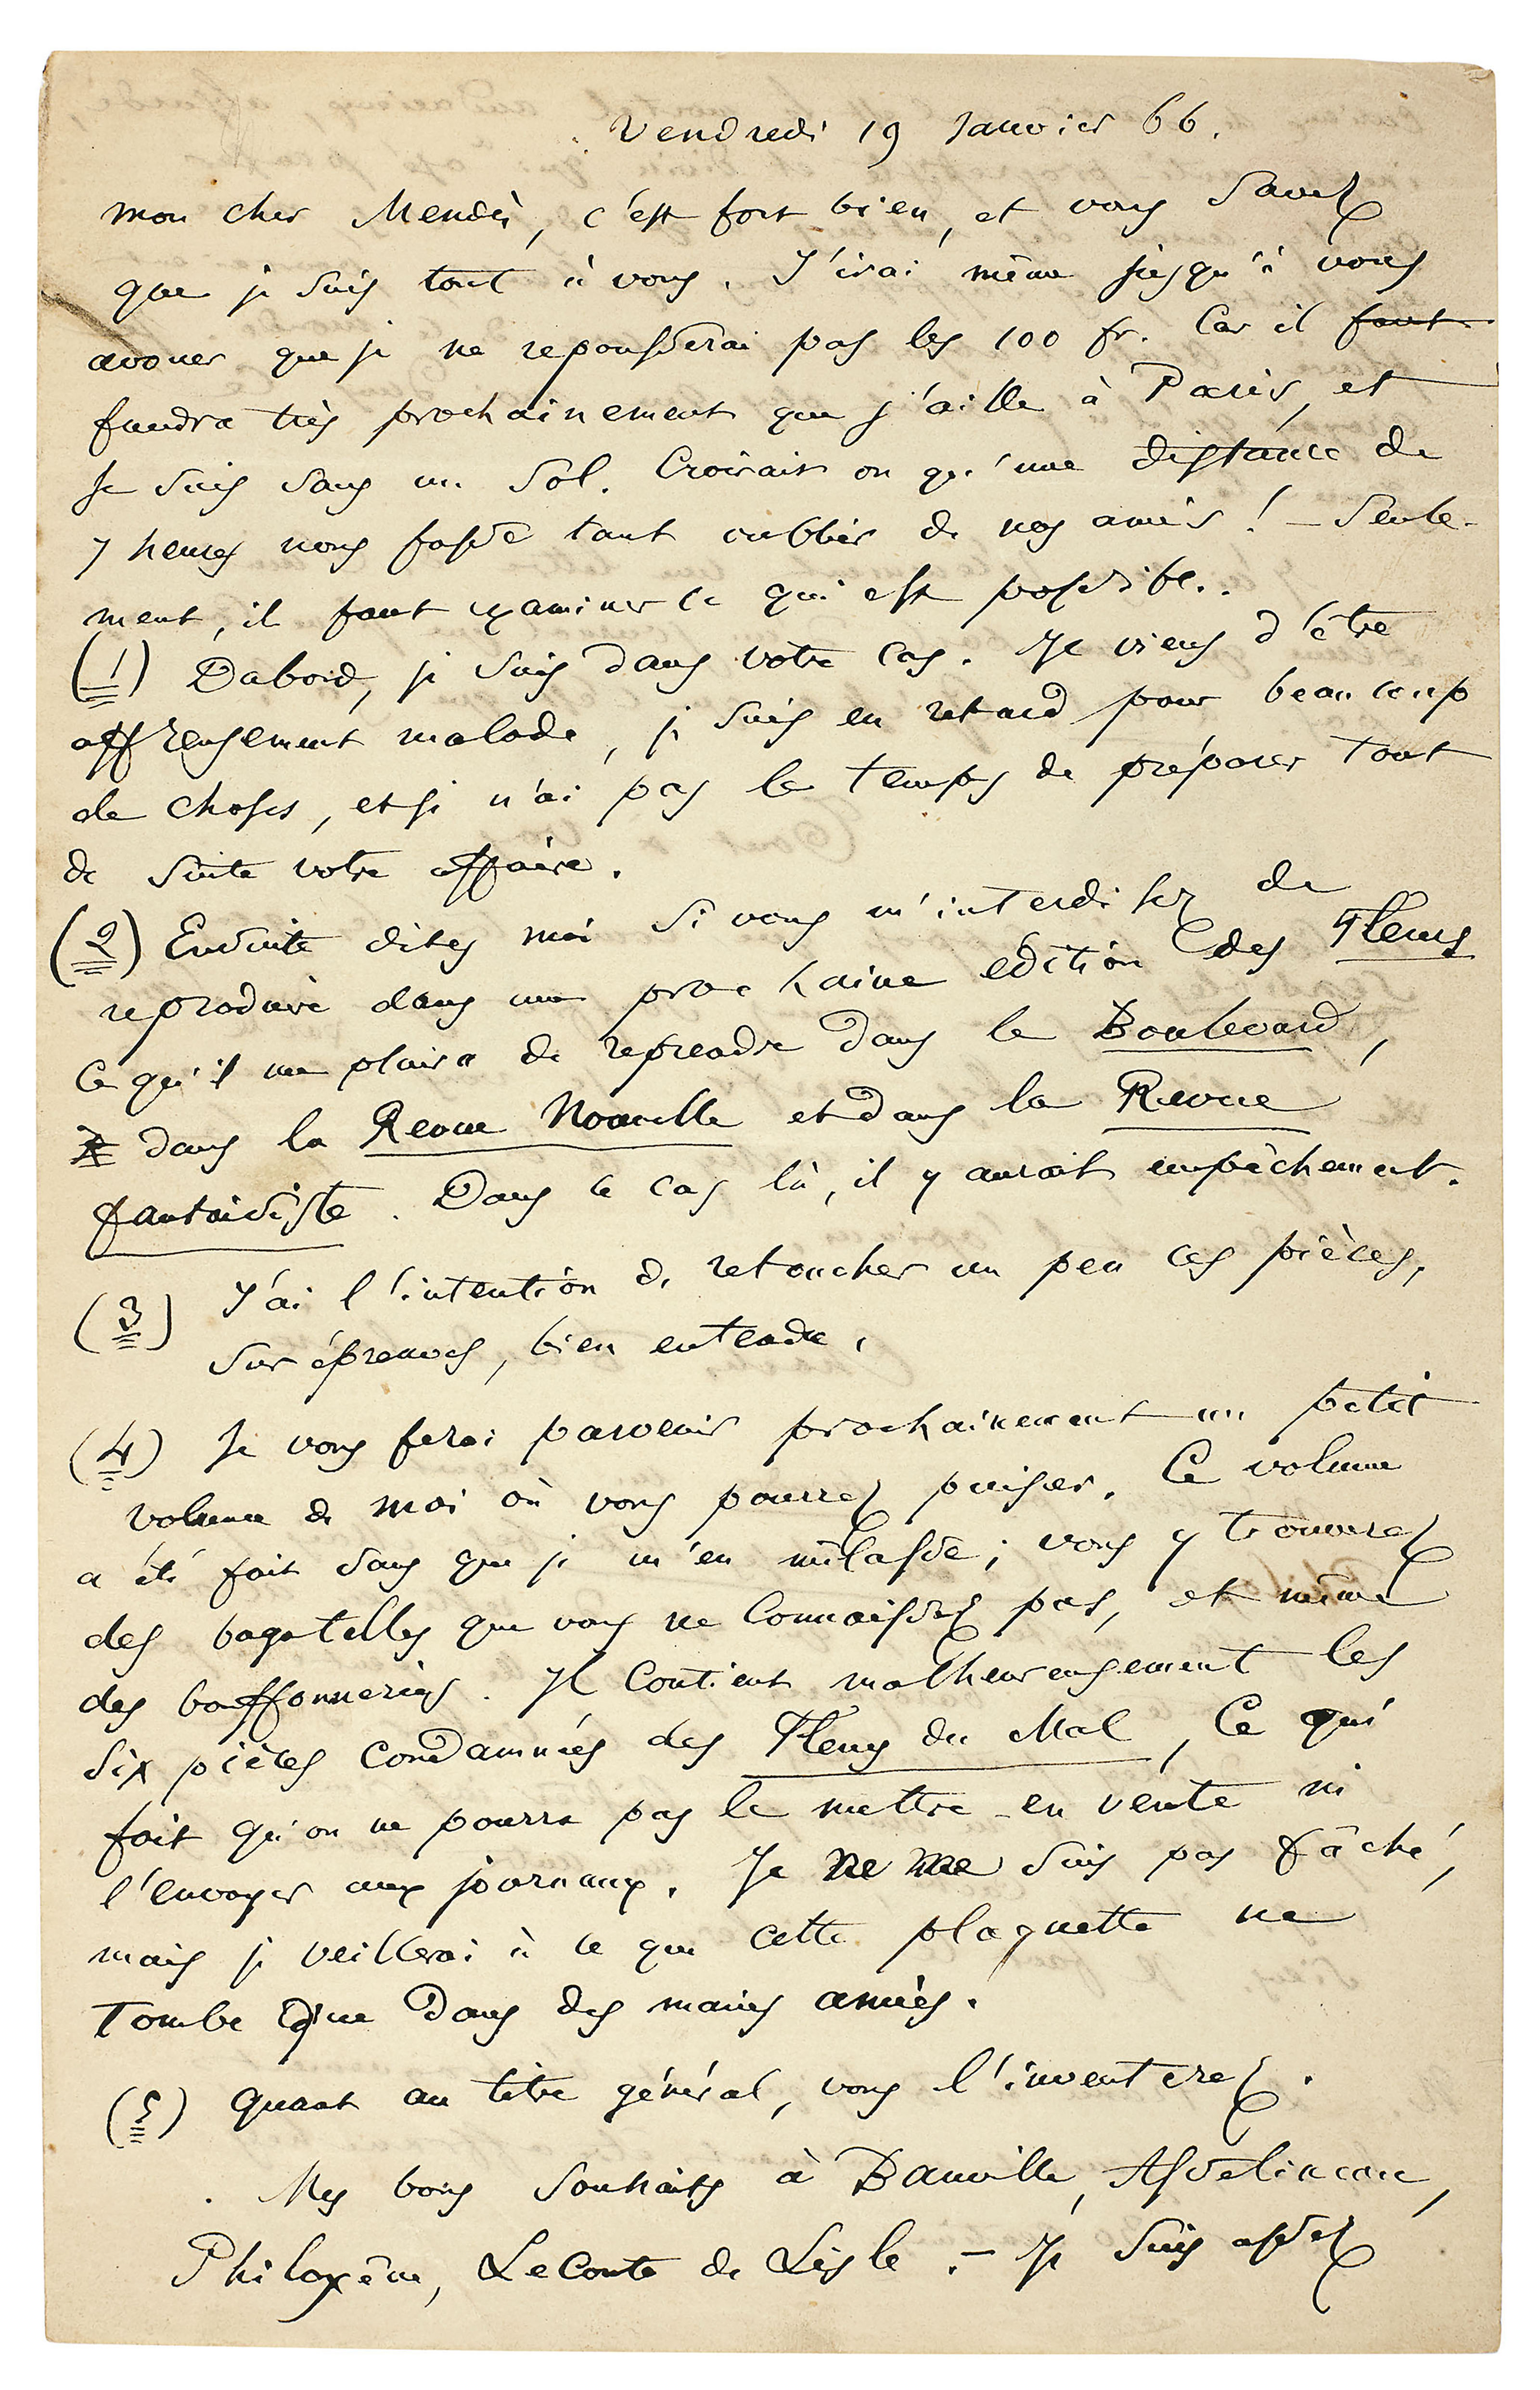 Vendredi 19 Janvier 66.
mon cher Mendès, c'est fort bien, et vous savez
que je suis tout à vous. J'irai même jusqu'à vous
avouer que je ne repousserai pas les 100 fr. Car il faut
faudra très prochainement que j'aille à Paris, et
je suis sans un sol. Croirait on qu'une distance de
7 heures nous fasse tant oublier de nos amis ! – Seule-
ment, il faut examiner ce qui est possible.
(1) Dabord, je suis dans votre cas. Je viens d'être
affreusement malade, je suis en retard pour beaucoup
de choses, et je n'ai pas le temps de préparer tout
de suite votre affaire.
(2) Ensuite dites moi si vous m'interdisez de
reproduire dans une prochaine édition des Fleurs
ce qu'il me plaira de reprendre dans le Boulevard,
dans la Revue Nouvelle et dans la Revue
fantaisiste. Dans ce cas là, il y aurait empêchement.
(3) J'ai l'intention de retoucher un peu ces pièces,
sur épreuves, bien entendu.
(4) Je vous ferai parvenir prochainement un petit
volume de moi où vous pourrez puiser. Ce volume
a été fait sans que je m'en mêlasse ; vous y trouverez
des bagatelles que vous ne connaissez pas, et même
des bouffonneries. Il contient malheureusement les
six pièces condamnées des Fleurs du Mal, ce qui
fait qu'on ne pourra pas le mettre en vente ni
l'envoyer aux journaux. Je ne me suis pas fâché,
mais je veillerai à ce que cette plaquette ne
tombe que dans des mains amies.
(5) Quant au titre général, vous l'inventerez.
Mes bons souhaits à Banville, Asselineau,
Philoxène, Leconte de Lisle. – Je suis assez